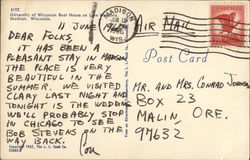 5192
University of Wisconsin Boat House on Lake
Madison, Wisconsin.
11 JUNE
DEAR FOLKS,
IT HAS BEEN A
PLEASANT STAY IN MADISON
THE PLACE IS VERY
BEAUTIFUL IN THE
SUMMER. WE VISITED
CLARY LAST NIGHT AND
TONIGHT IS THE WEDDING
WE'LL PROBABLY STOP
IN CHICAGO TO SEE
BOB STEVENS ON THE
WAY BACK.
Con
MADISON
JUN 13
WIS.
AIR MAIL
Post Card
MR. AND MRS. CONRAD JOHNSON
BOX 23
MALIN, ORE.
97632